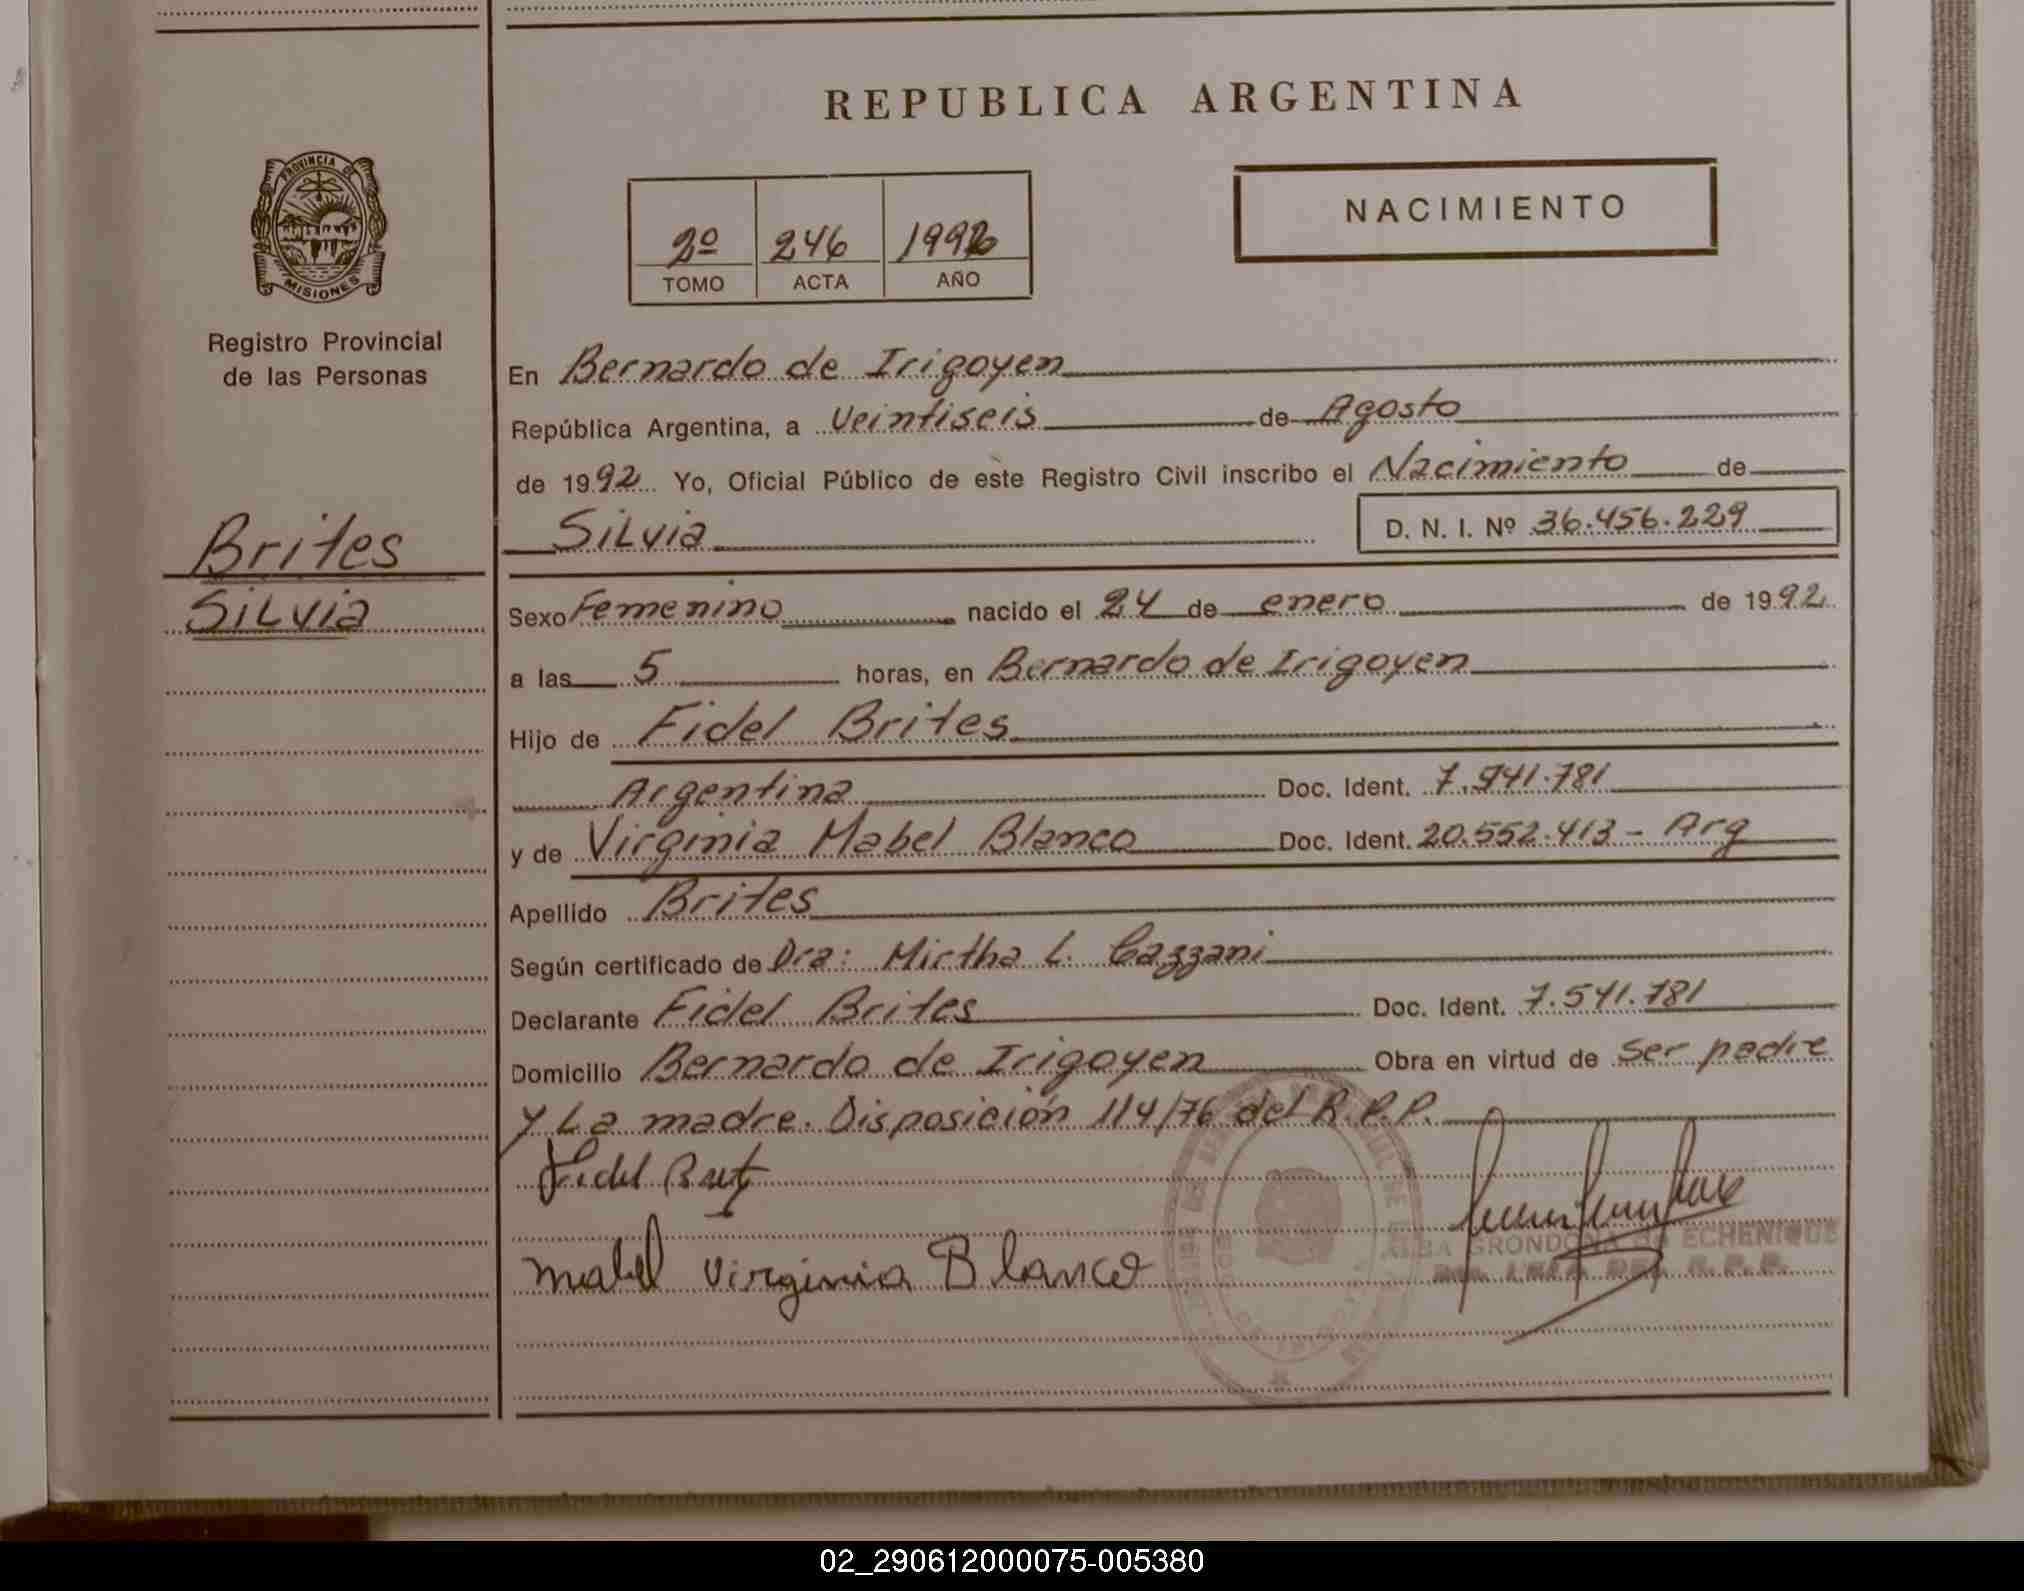 REPUBLICA ARGENTINA
PROVINCIA DE
MISIONES
Registro Provincial
de las Personas
Brites
Silvia
2º 246 1992
TOMO ACTA AÑO
NACIMIENTO
En Bernardo de Irigoyen
República Argentina, a Veintiseis de Agosto
de 1992 Yo, Oficial Público de este Registro Civil inscribo el Nacimiento de
Silvia D. N. I. Nº 36.456.229
Sexo Femenino nacido el 24 de enero de 1992
a las 5 horas, en Bernardo de Irigoyen
Hijo de Fidel Brites
Argentina Doc. Ident. 7.941.781
y de Virginia Mabel Blanco Doc. Ident. 20.552.413 - Arg
Apellido Brites
Según certificado de Dra: Mirtha L. Cazzani
Declarante Fidel Brites Doc. Ident. 7.541.781
Domicilio Bernardo de Irigoyen Obra en virtud de ser padre
y La madre. Disposición 114/76 del R.P.P.
Fidel
Mabel Virginia Blanco
GRONDONA de ECHENIQUE
R.P.P.
02_290612000075-005380